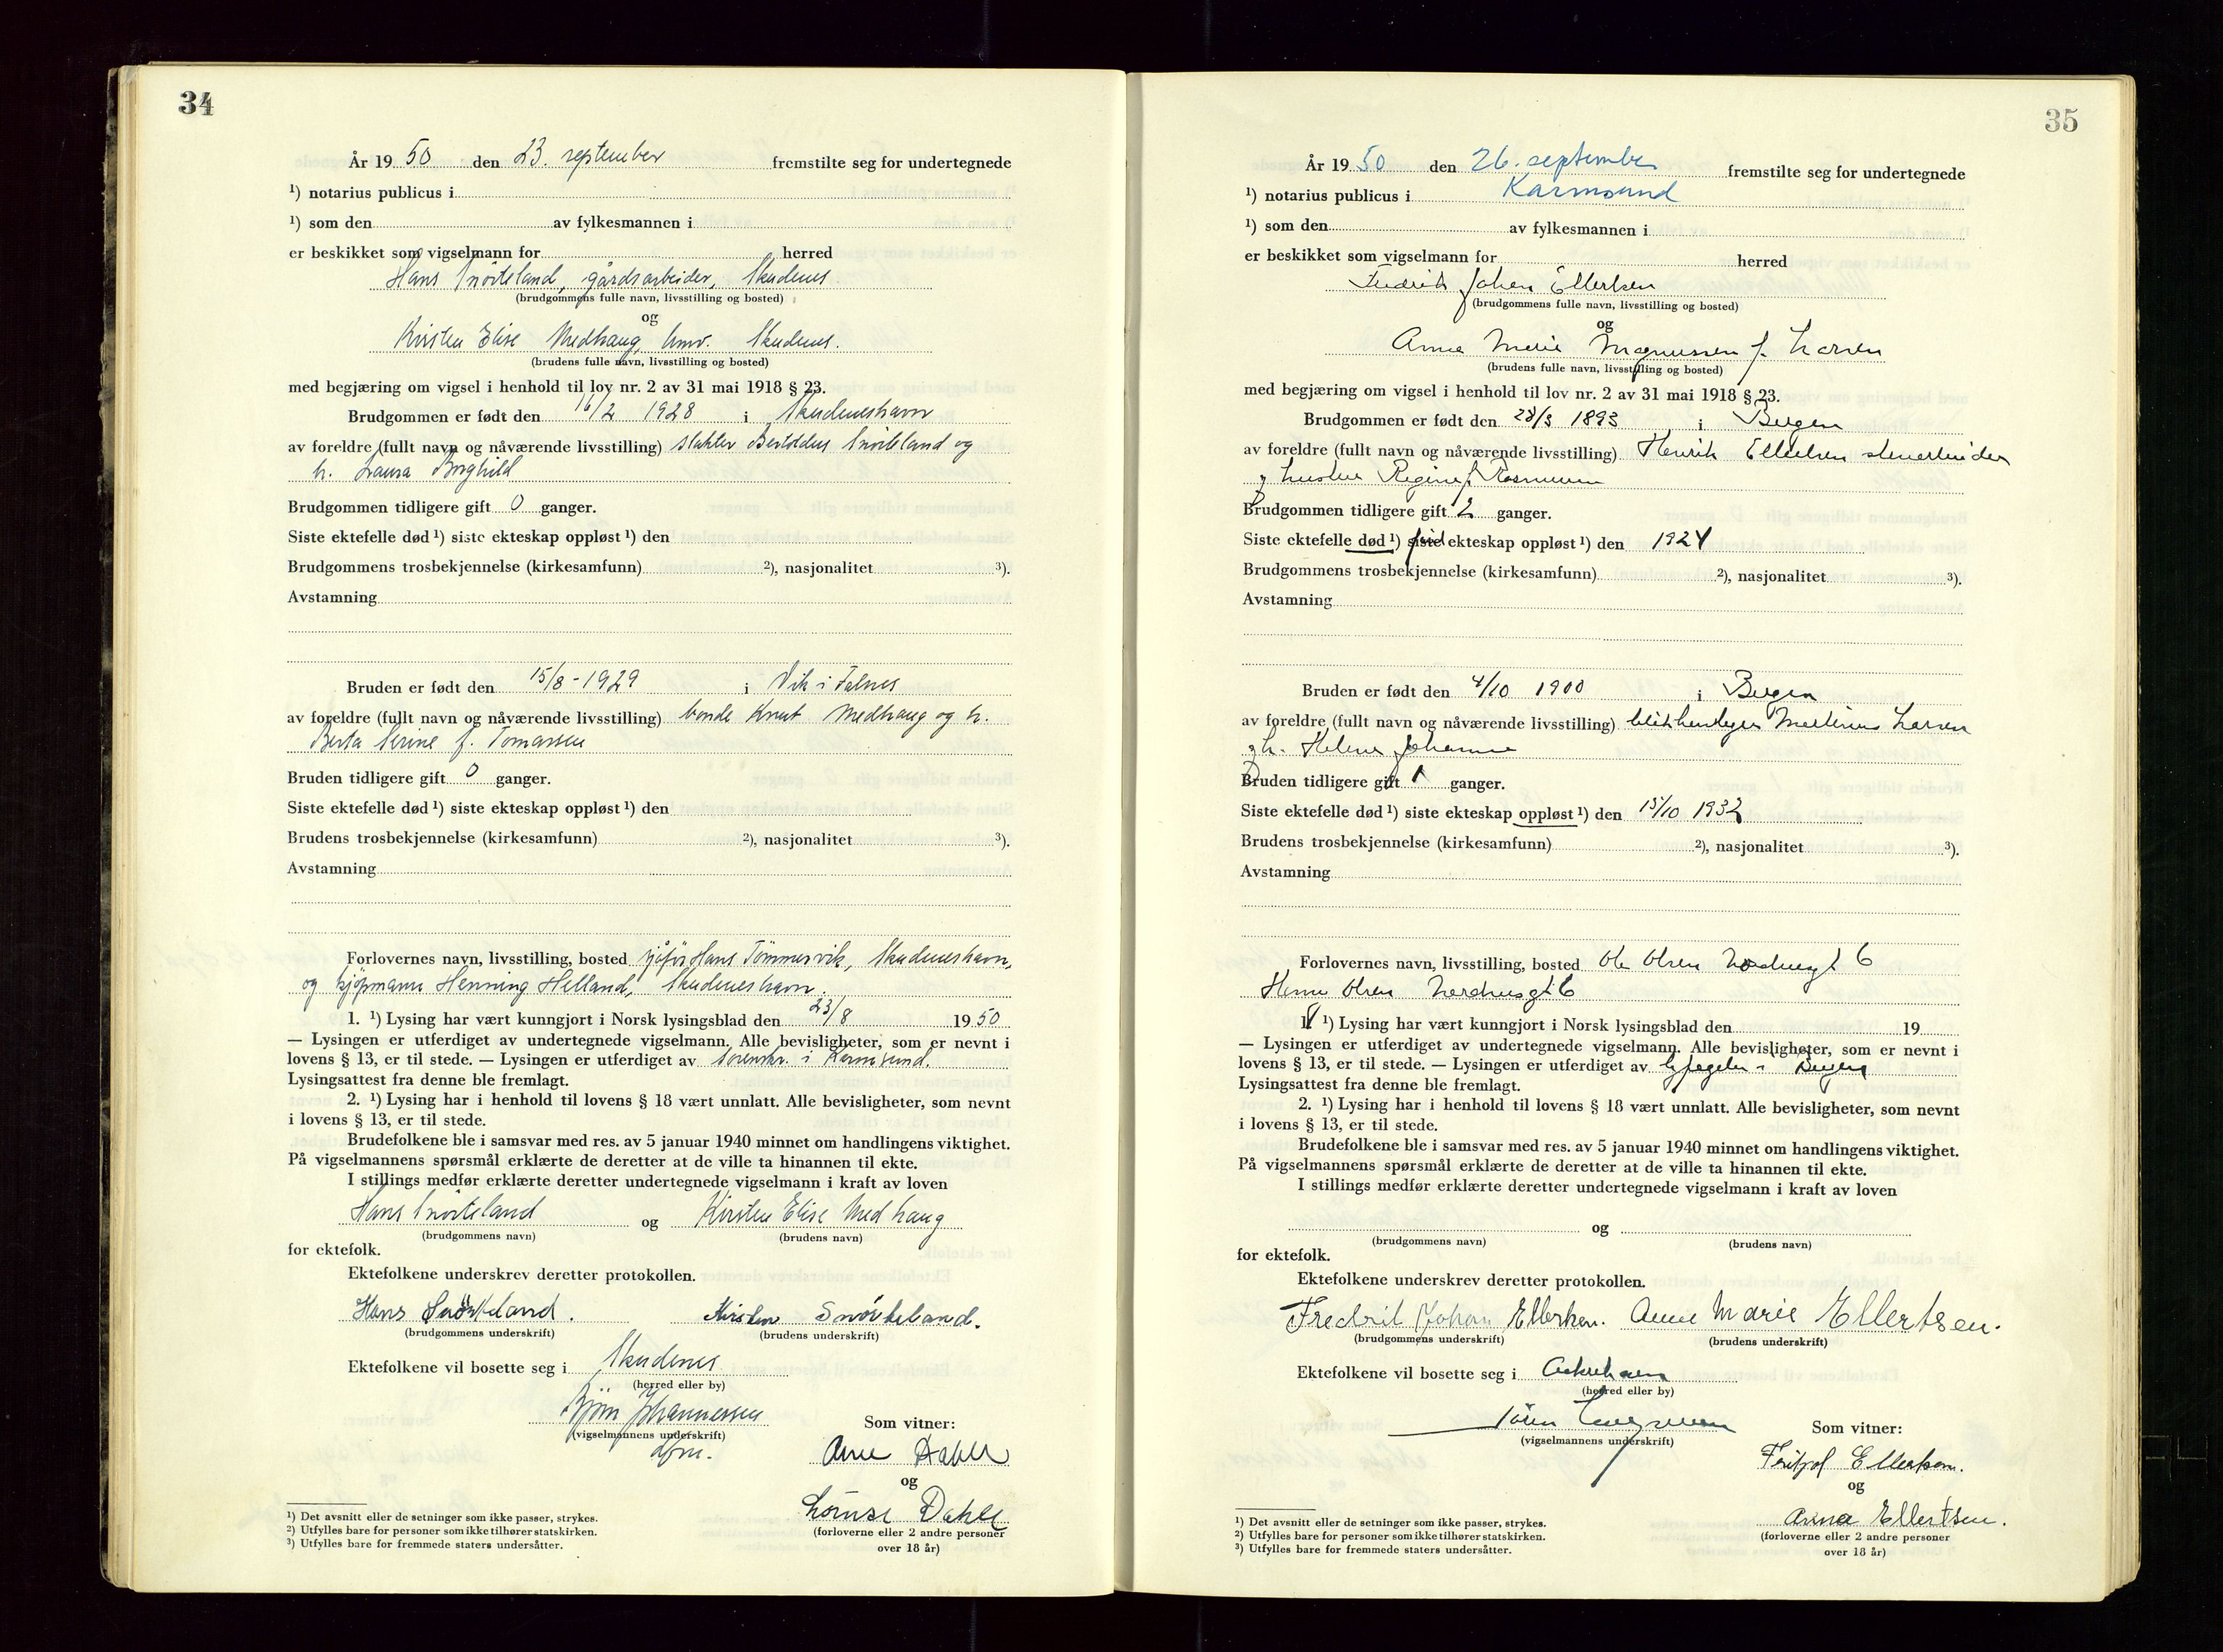 34
År 19 50 den 23. september fremstilte seg for undertegnede
¹) notarius publicus i
¹) som den av fylkesmannen i
er beskikket som vigselmann for herred
Hans Snörteland, gårdsarbeider, Skudenes
(brudgommens fulle navn, livsstilling og bosted)
og
Kirsten Elise Medhaug, hmv. Skudenes.
(brudens fulle navn, livsstilling og bosted)
med begjæring om vigsel i henhold til lov nr. 2 av 31 mai 1918 § 23.
Brudgommen er født den 16/2 1928 i Skudeneshavn
av foreldre (fullt navn og nåværende livsstilling) slakter Snörteland og
h. Laura Borghild
Brudgommen tidligere gift 0 ganger.
Siste ektefelle død ¹) siste ekteskap oppløst ¹) den
Brudgommens trosbekjennelse (kirkesamfunn) ²), nasjonalitet ³).
Avstamning
Bruden er født den 15/8 - 1929 i Vik i Falnes
av foreldre (fullt navn og nåværende livsstilling) bonde Knut Medhaug og h.
Berta Serine f. Tomassen
Bruden tidligere gift 0 ganger.
Siste ektefelle død ¹) siste ekteskap oppløst ¹) den
Brudens trosbekjennelse (kirkesamfunn) ²), nasjonalitet ³).
Avstamning
Forlovernes navn, livsstilling, bosted sjåfør Hans Tömmervik, Skudeneshavn,
og kjöpmann Henning Helland, Skudeneshavn.
1. ¹) Lysing har vært kunngjort i Norsk lysingsblad den 23/8 19 50
— Lysingen er utferdiget av undertegnede vigselmann. Alle bevisligheter, som er nevnt i
lovens § 13, er til stede. — Lysingen er utferdiget av Sorenskr. i Karmsund.
Lysingsattest fra denne ble fremlagt.
2. ¹) Lysing har i henhold til lovens § 18 vært unnlatt. Alle bevisligheter, som nevnt
i lovens § 13, er til stede.
Brudefolkene ble i samsvar med res. av 5 januar 1940 minnet om handlingens viktighet.
På vigselmannens spørsmål erklærte de deretter at de ville ta hinannen til ekte.
I stillings medfør erklærte deretter undertegnede vigselmann i kraft av loven
Hans Snörteland og Kirsten Elise Medhaug
(brudgommens navn) (brudens navn)
for ektefolk.
Ektefolkene underskrev deretter protokollen.
Hans Snörteland. Kirsten Snörteland.
(brudgommens underskrift) (brudens underskrift)
Ektefolkene vil bosette seg i Skudenes
(herred eller by)
Bjørn Johannessen
(vigselmannens underskrift)
dfm.
Som vitner:
Arne Dahle
og
Lovise Dahle
(forloverne eller 2 andre personer
over 18 år)
¹) Det avsnitt eller de setninger som ikke passer, strykes.
²) Utfylles bare for personer som ikke tilhører statskirken.
³) Utfylles bare for fremmede staters undersåtter.
35
År 19 50 den 26. september fremstilte seg for undertegnede
¹) notarius publicus i Karmsund
¹) som den av fylkesmannen i
er beskikket som vigselmann for herred
Fredrik Johan Ellertsen
(brudgommens fulle navn, livsstilling og bosted)
og
Anna Marie Magnussen f. Larsen
(brudens fulle navn, livsstilling og bosted)
med begjæring om vigsel i henhold til lov nr. 2 av 31 mai 1918 § 23.
Brudgommen er født den 28/3 1893 i Bergen
av foreldre (fullt navn og nåværende livsstilling) Henrik Ellertsen stenarbeider
og hustru Regine f. Rasmussen
Brudgommen tidligere gift 2 ganger.
Siste ektefelle død ¹) siste ekteskap oppløst ¹) den 1924
Brudgommens trosbekjennelse (kirkesamfunn) ²), nasjonalitet ³).
Avstamning
Bruden er født den 4/10 1900 i Bergen
av foreldre (fullt navn og nåværende livsstilling) Larsen
og h. Helene Johanne
Bruden tidligere gift 1 ganger.
Siste ektefelle død ¹) siste ekteskap oppløst ¹) den 15/10 1932
Brudens trosbekjennelse (kirkesamfunn) ²), nasjonalitet ³).
Avstamning
Forlovernes navn, livsstilling, bosted Ole Olsen 6
Olsen 6
1. ¹) Lysing har vært kunngjort i Norsk lysingsblad den 19
— Lysingen er utferdiget av undertegnede vigselmann. Alle bevisligheter, som er nevnt i
lovens § 13, er til stede. — Lysingen er utferdiget av byfogden i Bergen
Lysingsattest fra denne ble fremlagt.
2. ¹) Lysing har i henhold til lovens § 18 vært unnlatt. Alle bevisligheter, som nevnt
i lovens § 13, er til stede.
Brudefolkene ble i samsvar med res. av 5 januar 1940 minnet om handlingens viktighet.
På vigselmannens spørsmål erklærte de deretter at de ville ta hinannen til ekte.
I stillings medfør erklærte deretter undertegnede vigselmann i kraft av loven
og
(brudgommens navn) (brudens navn)
for ektefolk.
Ektefolkene underskrev deretter protokollen.
Fredrik Johan Ellertsen. Anne Marie Ellertsen.
(brudgommens underskrift) (brudens underskrift)
Ektefolkene vil bosette seg i Åkrehavn
(herred eller by)
(vigselmannens underskrift)
Som vitner:
Fritjof Ellertsen.
og
Anna Ellertsen.
(forloverne eller 2 andre personer
over 18 år)
¹) Det avsnitt eller de setninger som ikke passer, strykes.
²) Utfylles bare for personer som ikke tilhører statskirken.
³) Utfylles bare for fremmede staters undersåtter.